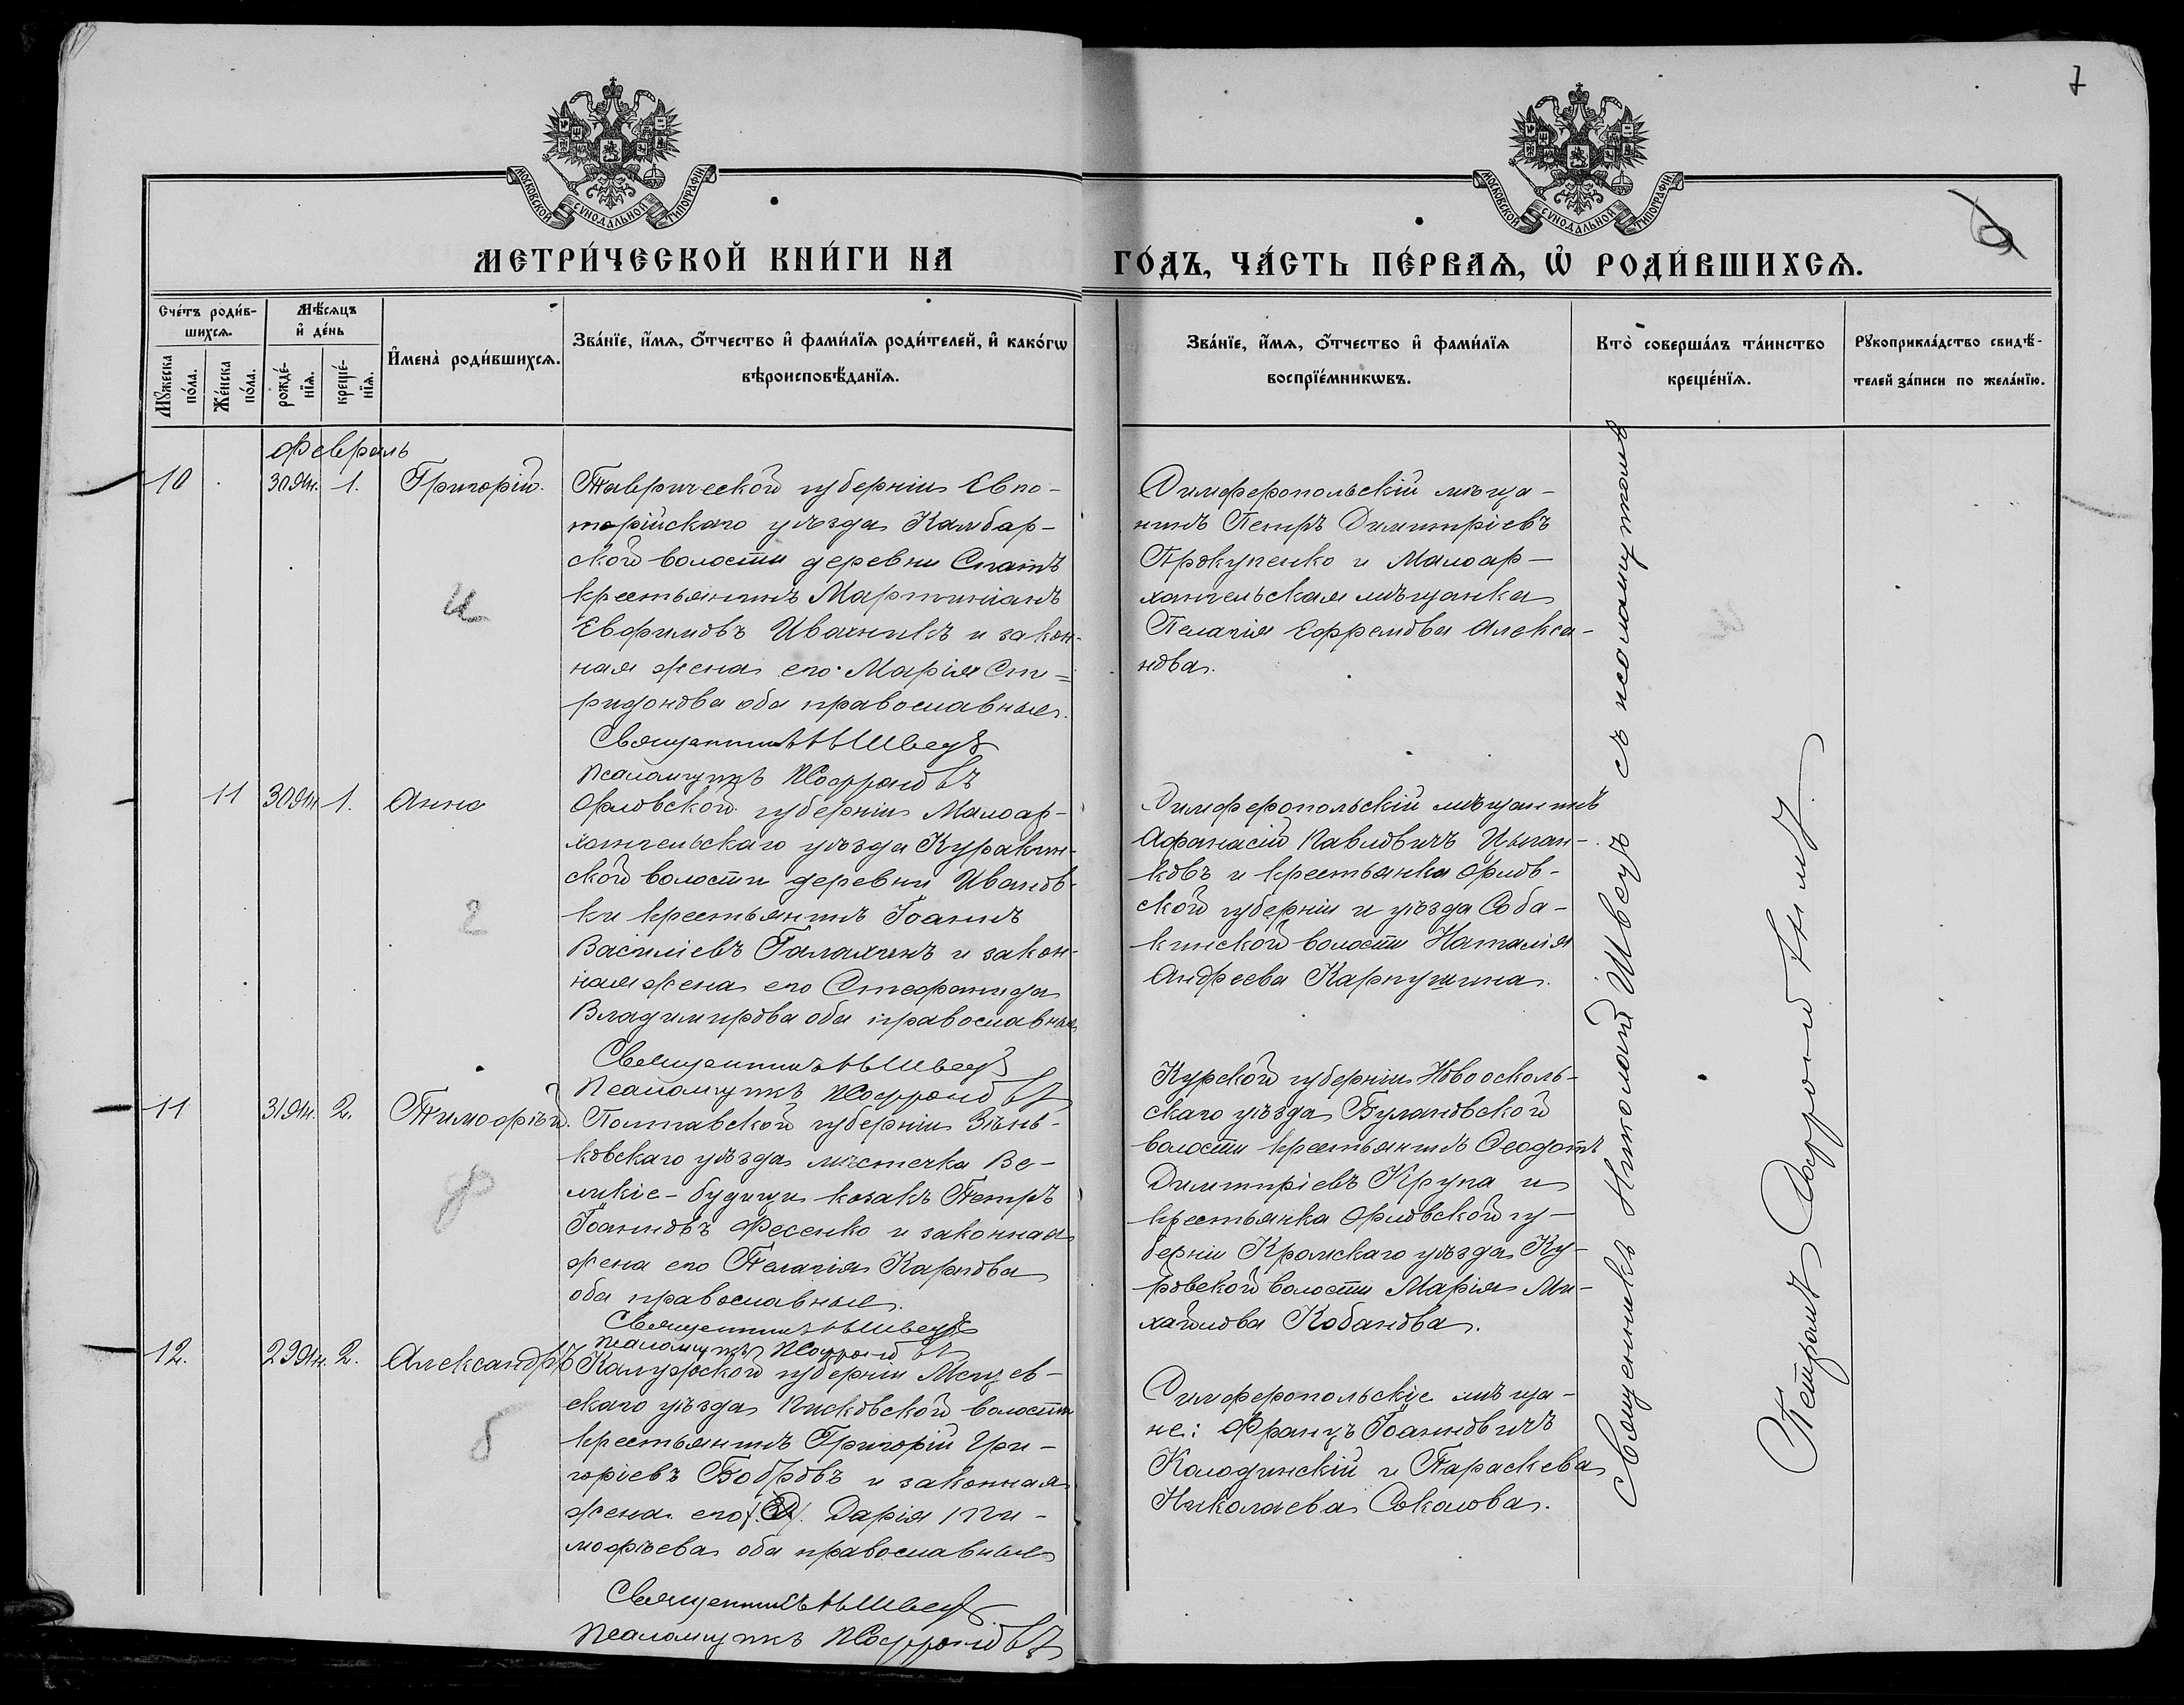 7
МОСКОВСКОЙ СѴНОДАЛЬНОЙ ТИПОГРАФІИ.
МОСКОВСКОЙ СѴНОДАЛЬНОЙ ТИПОГРАФІИ.
МЕТРИ́ЧЕСКОЙ КНИ́ГИ НА
ГО́ДЪ, ЧА́СТЬ ПЕ́РВАѦ, Ѡ҆ РОДИ́ВШИХСѦ.
Сче́тъ роди́в-
шихсѧ.
Мѣ́сѧцъ
и҆ де́нь
Мꙋ́жеска по́ла.
Же́нска по́ла.
рожде́-нїѧ.
креще́-нїѧ.
И҆мена̀ роди́вшихсѧ.
Зва́нїе, и҆́мѧ, ѻ҆́тчество и҆ фами́лїѧ роди́телей, и҆ како́гѡ
вѣроисповѣ́данїѧ.
Зва́нїе, и҆́мѧ, ѻ҆́тчество и҆ фами́лїѧ
воспрїе́мникѡвъ.
Кто̀ соверша́лъ та́инство
креще́нїѧ.
Рꙋкоприкла́дство свидѣ́-
телей за́писи по жела́нїю.
Февраль
10 30 Ян. 1. Григорій.
Таврической губерніи Евпа-
торійскаго уѣзда Камбар-
ской волости деревни Спатъ
крестьянинъ Мартиніанъ
Евфимовъ Ивахникъ и закон-
ная жена его Марія Спи-
ридонова оба православные.
Священникъ Н Швецъ
Псаломщикъ П Софроновъ
И
Симферопольскій мѣща-
нинъ Петръ Димитріевъ
Прокупенко и Малоар-
хангельская мѣщанка
Пелагія Ефремова Алекса-
нова.
11 30 Ян 1. Анна
Орловской губерніи Малоар-
хангельскаго уѣзда Куракин-
ской волости деревни Иванов-
ки крестьянинъ Іоаннъ
Василіевъ Галахинъ и закон-
ная жена его Стефанида
Владимирова оба православные
Священникъ Н Швецъ
Псаломщикъ П Софроновъ
2
Симферопольскій мѣщанинъ
Афанасій Павловичъ Цыган-
ковъ и крестьянка Орлов-
ской губерніи и уѣзда Соба-
кинской волости Наталія
Андреева Карпушина.
11 31 Ян. 2. Тимоѳей.
Полтавской губерніи Зѣнь-
ковскаго уѣзда мѣстечка Ве-
ликіе-Будищи козакъ Петръ
Іоанновъ Фесенко и законная
жена его Пелагія Карпова
оба православные.
Священникъ Н Швецъ
Псаломщикъ П Софроновъ
Ф
Курской губерніи Новоосколь-
скаго уѣзда Булановской
волости крестьянинъ Ѳеодотъ
Димитріевъ Крупа и
крестьянка Орловской гу-
берніи Кромскаго уѣзда Ку-
ровской волости Марія Ми-
хайлова Кобанова.
12. 29 Ян. 2. Александръ
Калужской губерніи Мещев-
скаго уѣзда волости
крестьянинъ Григорій Гри-
горіевъ Бобровъ и законная
жена его Дарія Ти-
моѳѣева оба православные
Священникъ Н Швецъ
Псаломщикъ П Софроновъ
Б
Симферопольскіе мѣща-
не: Францъ Іоанновичъ
Колодинскій и Параскева
Николаева Соколова.
Священникъ Николай Швецъ съ псаломщикомъ
Петромъ Софроновымъ.